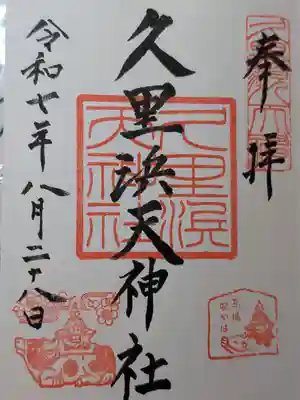 奉拝
久里浜天神社
令和七年八月二十八日
久里浜
天神社